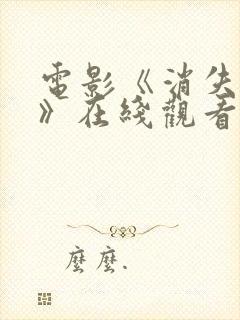 電影《消失
》在綫觀看
麼麼.